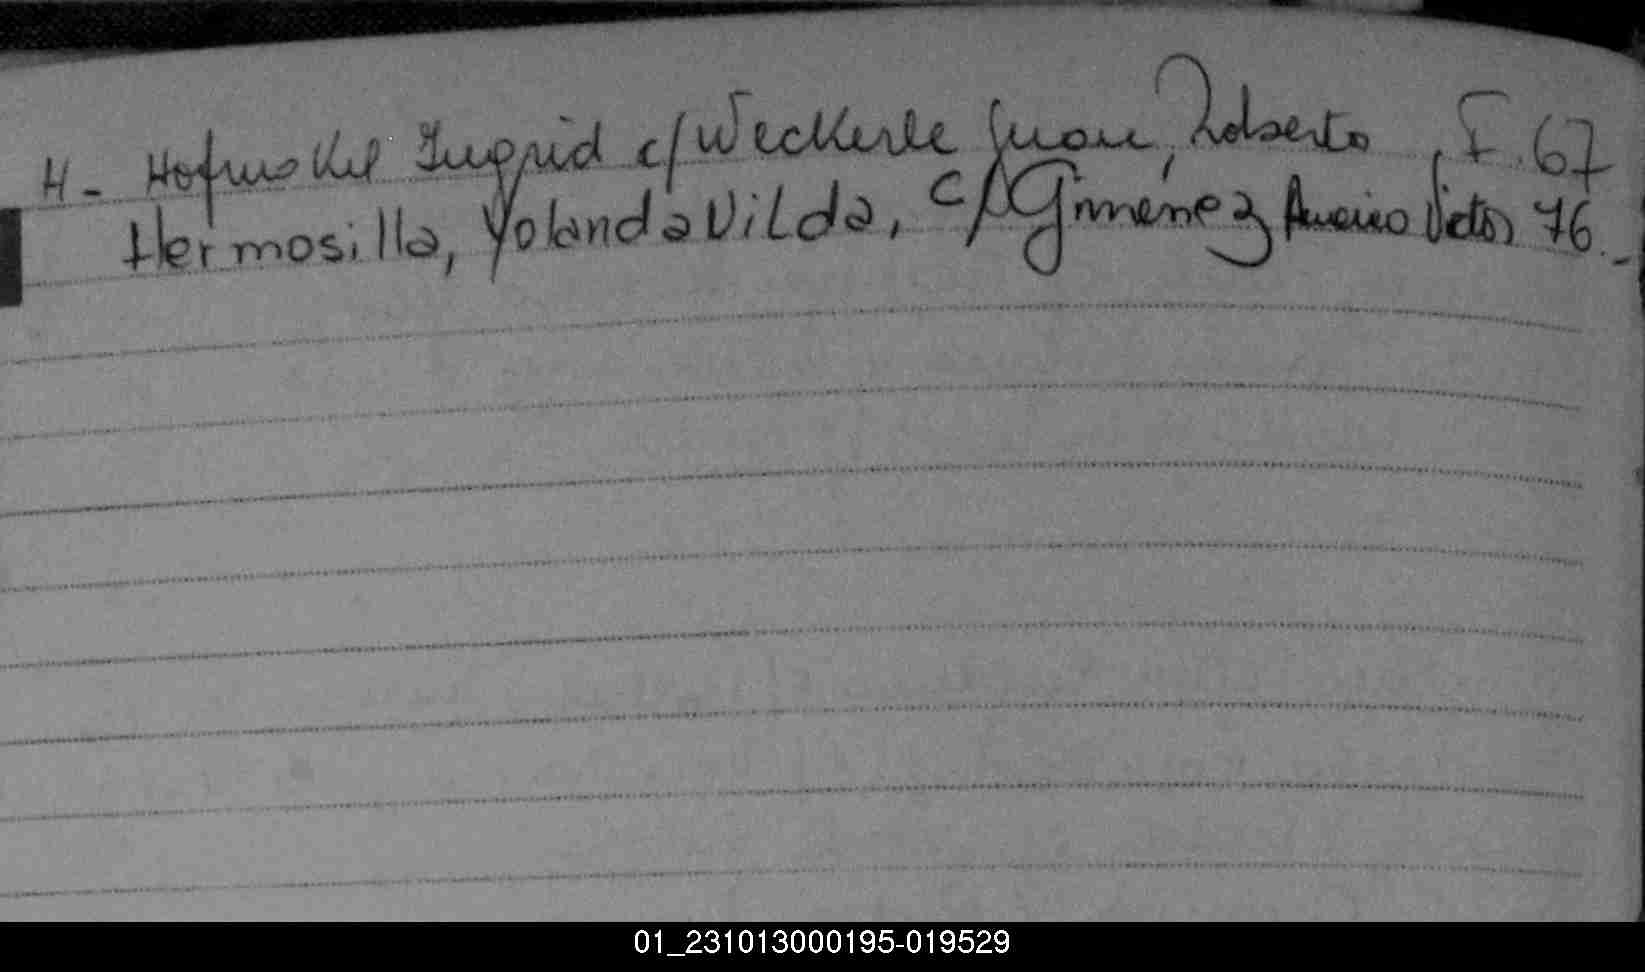 H- Ingrid c/ Weckerle Juan, Roberto, F. 67
Hermosilla, Yolanda Nilda, c/ Gimenez Americo Victor 76.-
01_231013000195-019529